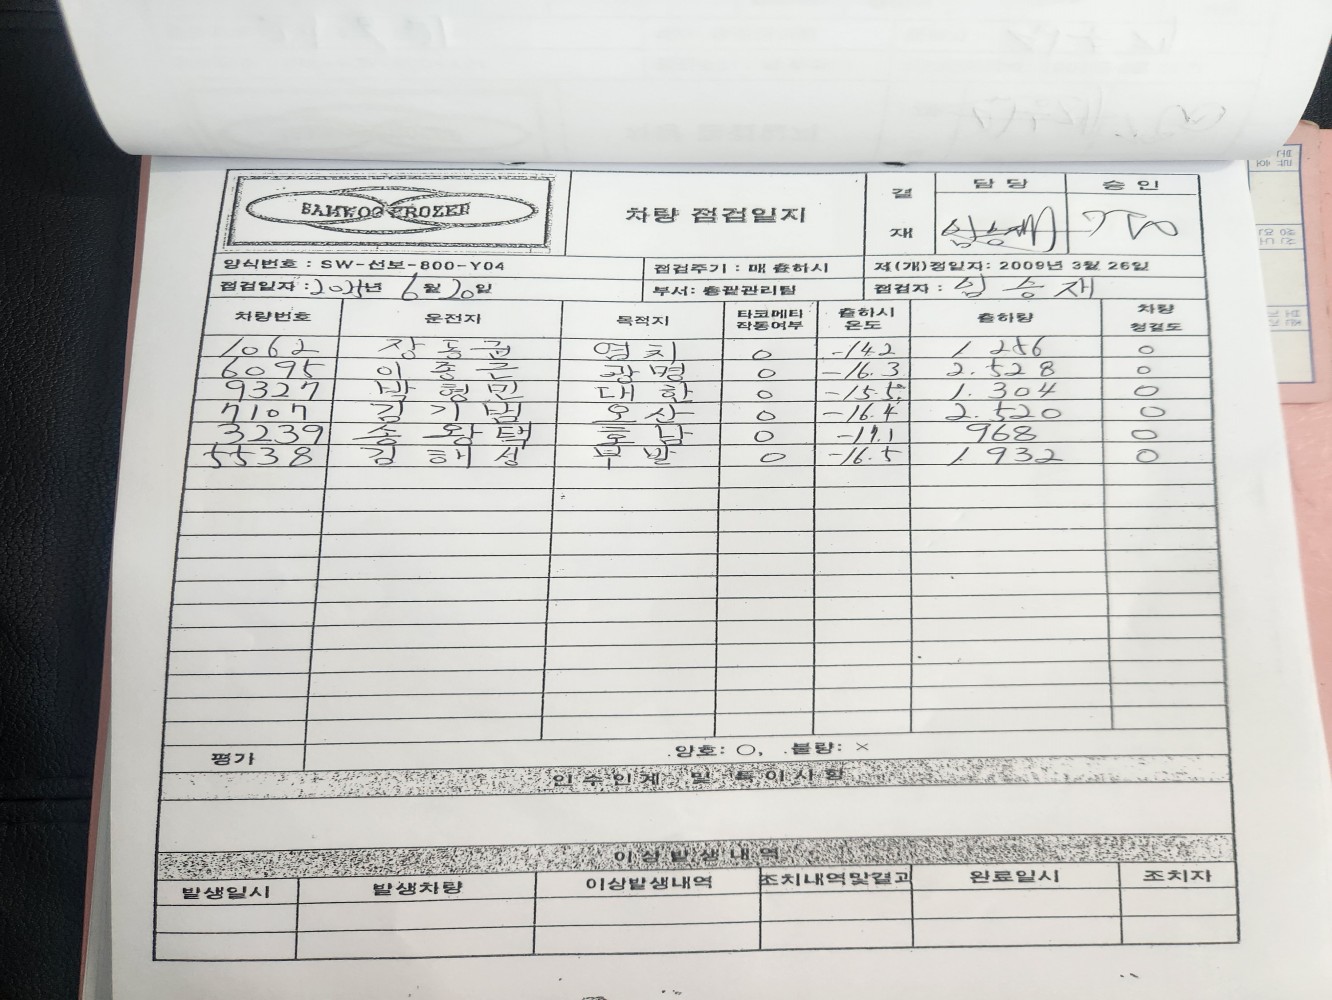 SAMWOO FROZEN
차량 점검일지
결 재 담당 승인
심승재
양식번호 : SW-선보-800-Y04 점검주기 : 매 출하시 제(개)정일자: 2009년 3월 26일
점검일자 : 년 6월 20일 부서: 총괄관리팀 점검자 : 심승재
차량번호 운전자 목적지 타코메타 작동여부 출하시 온도 출하량 차량 청결도
1062 장동 ○ -14.2 1.256 ○
6095 이종근 광명 ○ -16.3 2.528 ○
9327 박형민 대한 ○ -15.5 1.304 ○
7107 김기범 오산 ○ -16.4 2.520 ○
3239 송왕택 호남 ○ 968 ○
5538 김해성 부발 ○ -16.5 1.932 ○
평가 양호: ○, 불량: ×
인수인계 및 특이사항
이상발생내역
발생일시 발생차량 이상발생내역 조치내역및결과 완료일시 조치자